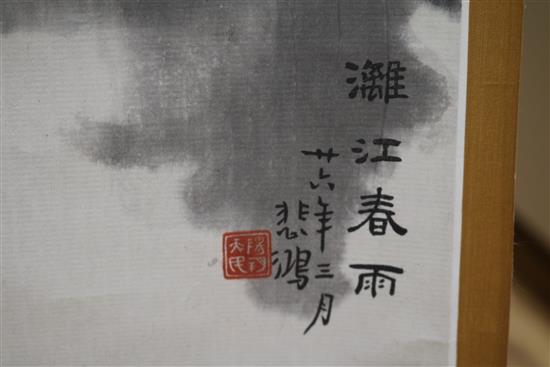 灕江春雨
廿六年三月
悲鴻